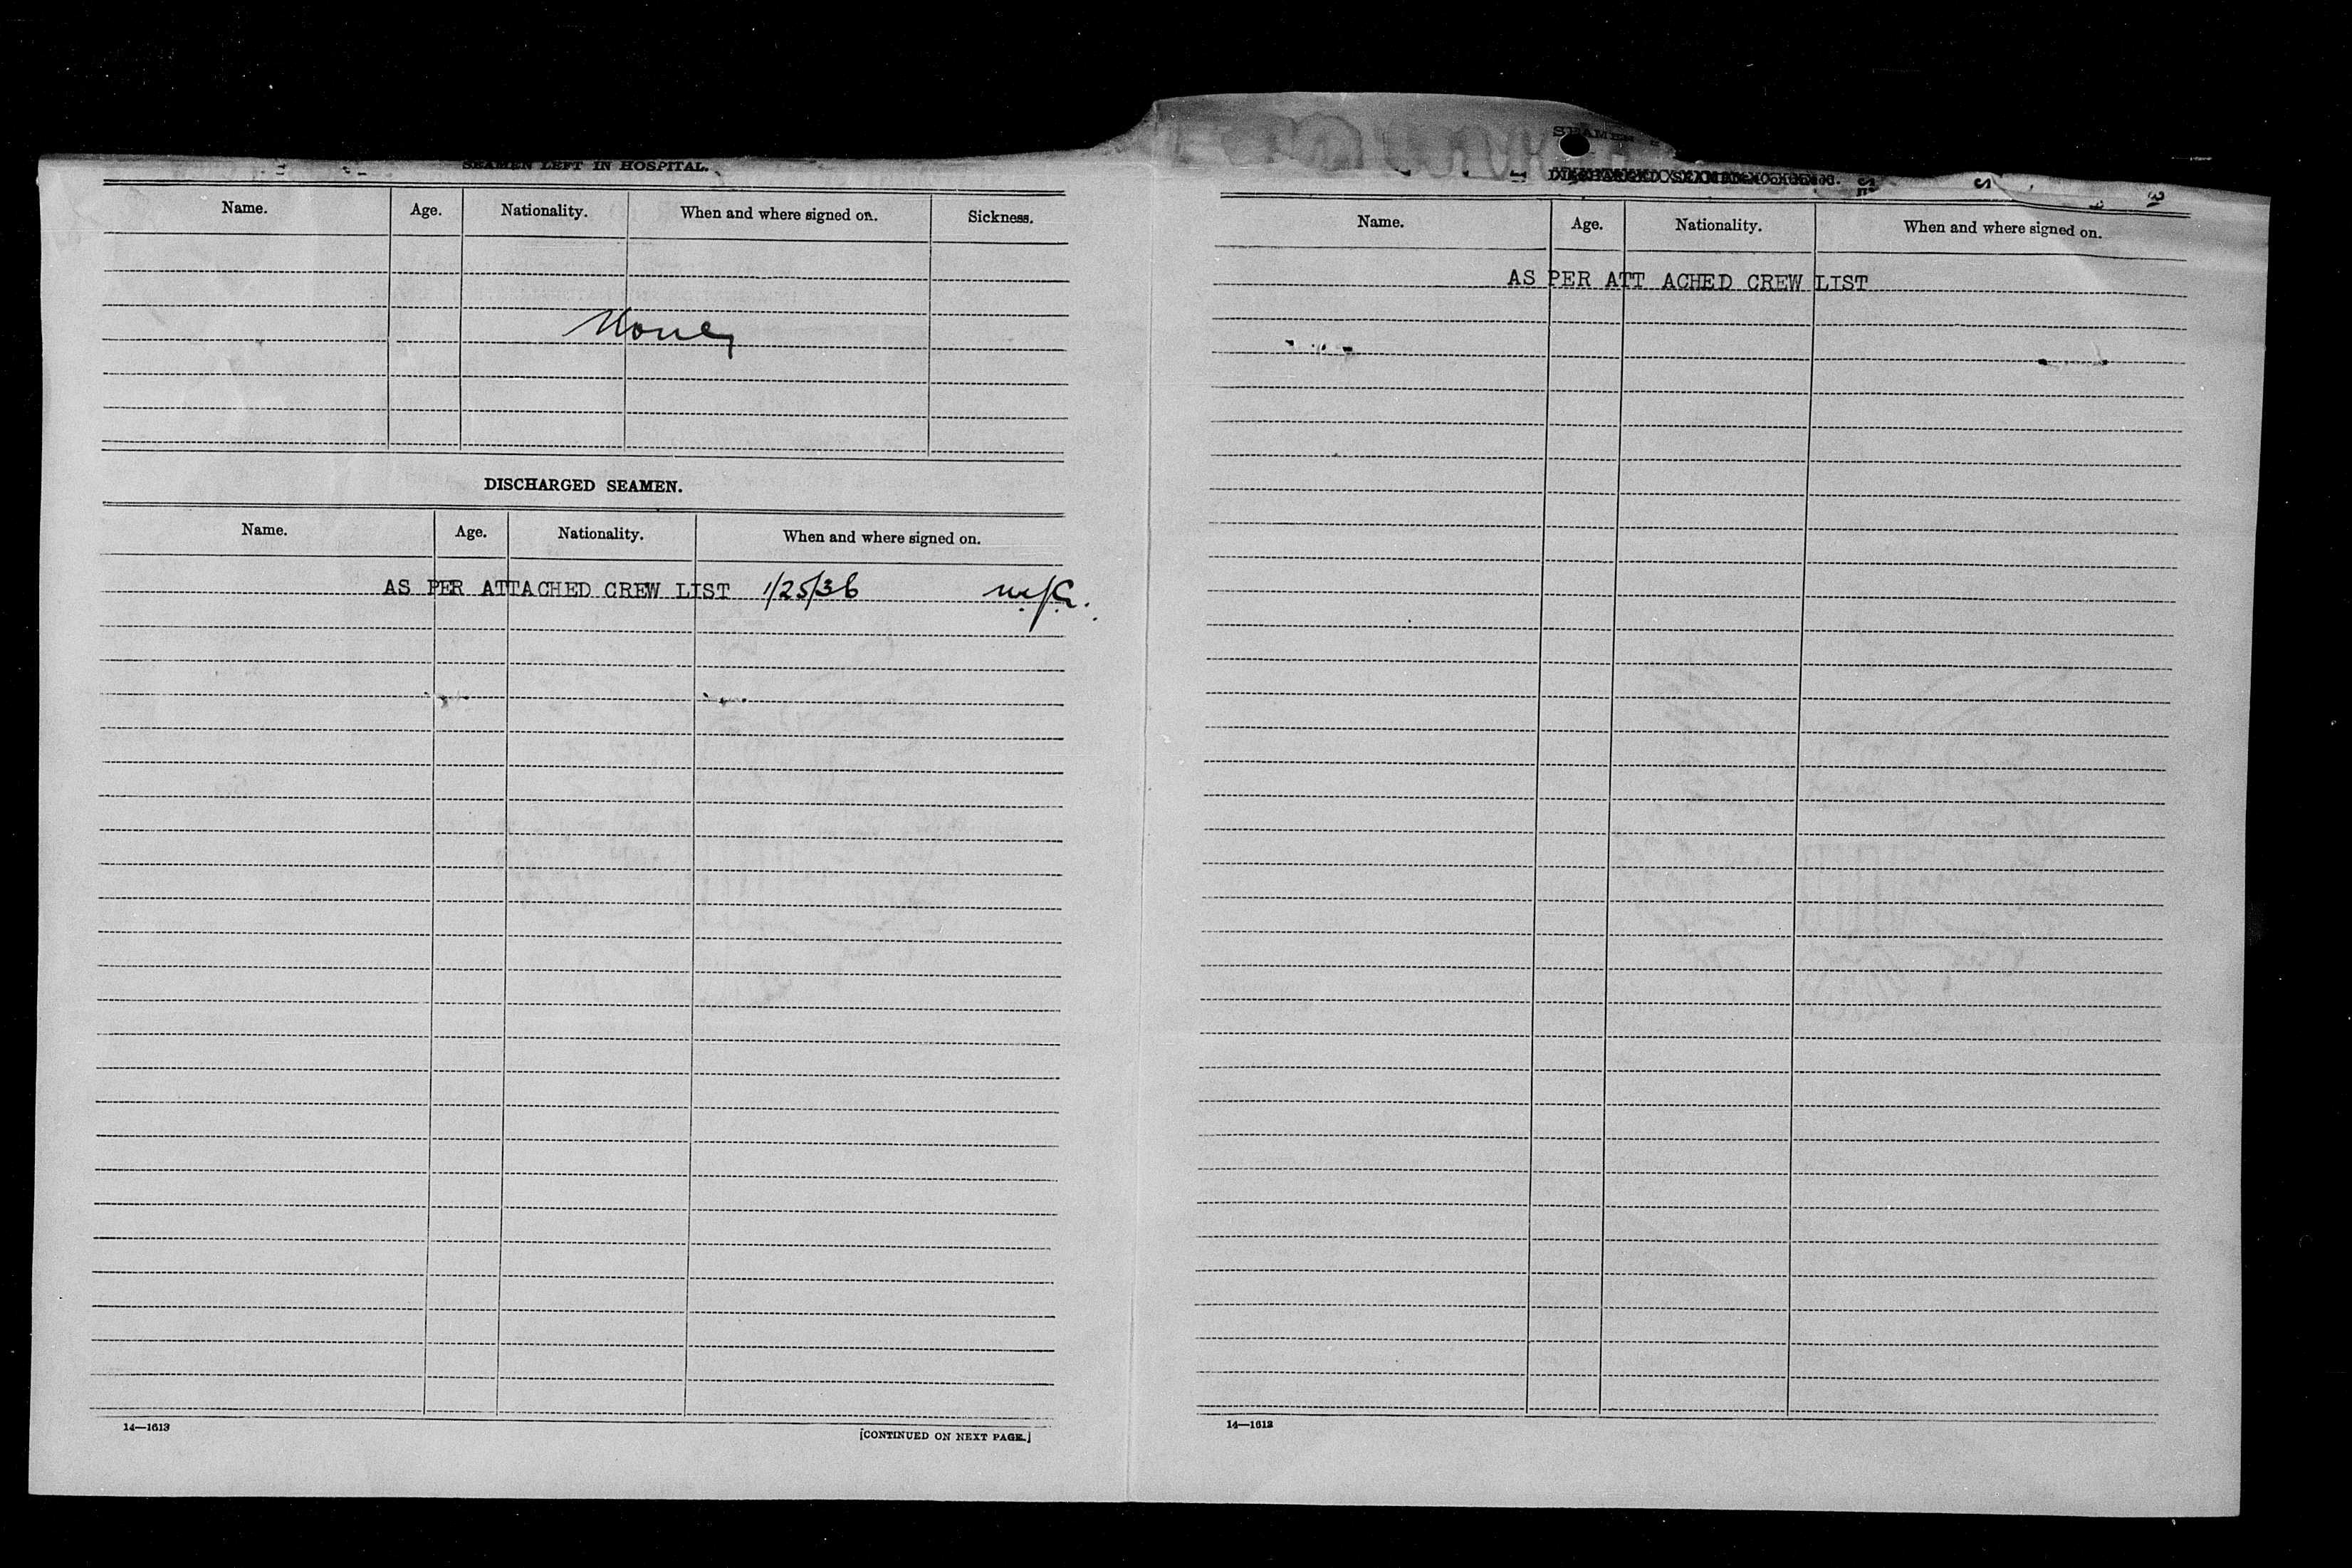 SEAMEN LEFT IN HOSPITAL.
Name. Age. Nationality. When and where signed on. Sickness.
None
DISCHARGED SEAMEN.
Name. Age. Nationality. When and where signed on.
AS PER ATTACHED CREW LIST 1/25/36
14—1613
[CONTINUED ON NEXT PAGE.]
SEAMEN
Name. Age. Nationality. When and where signed on.
AS PER ATT ACHED CREW LIST
14—1613